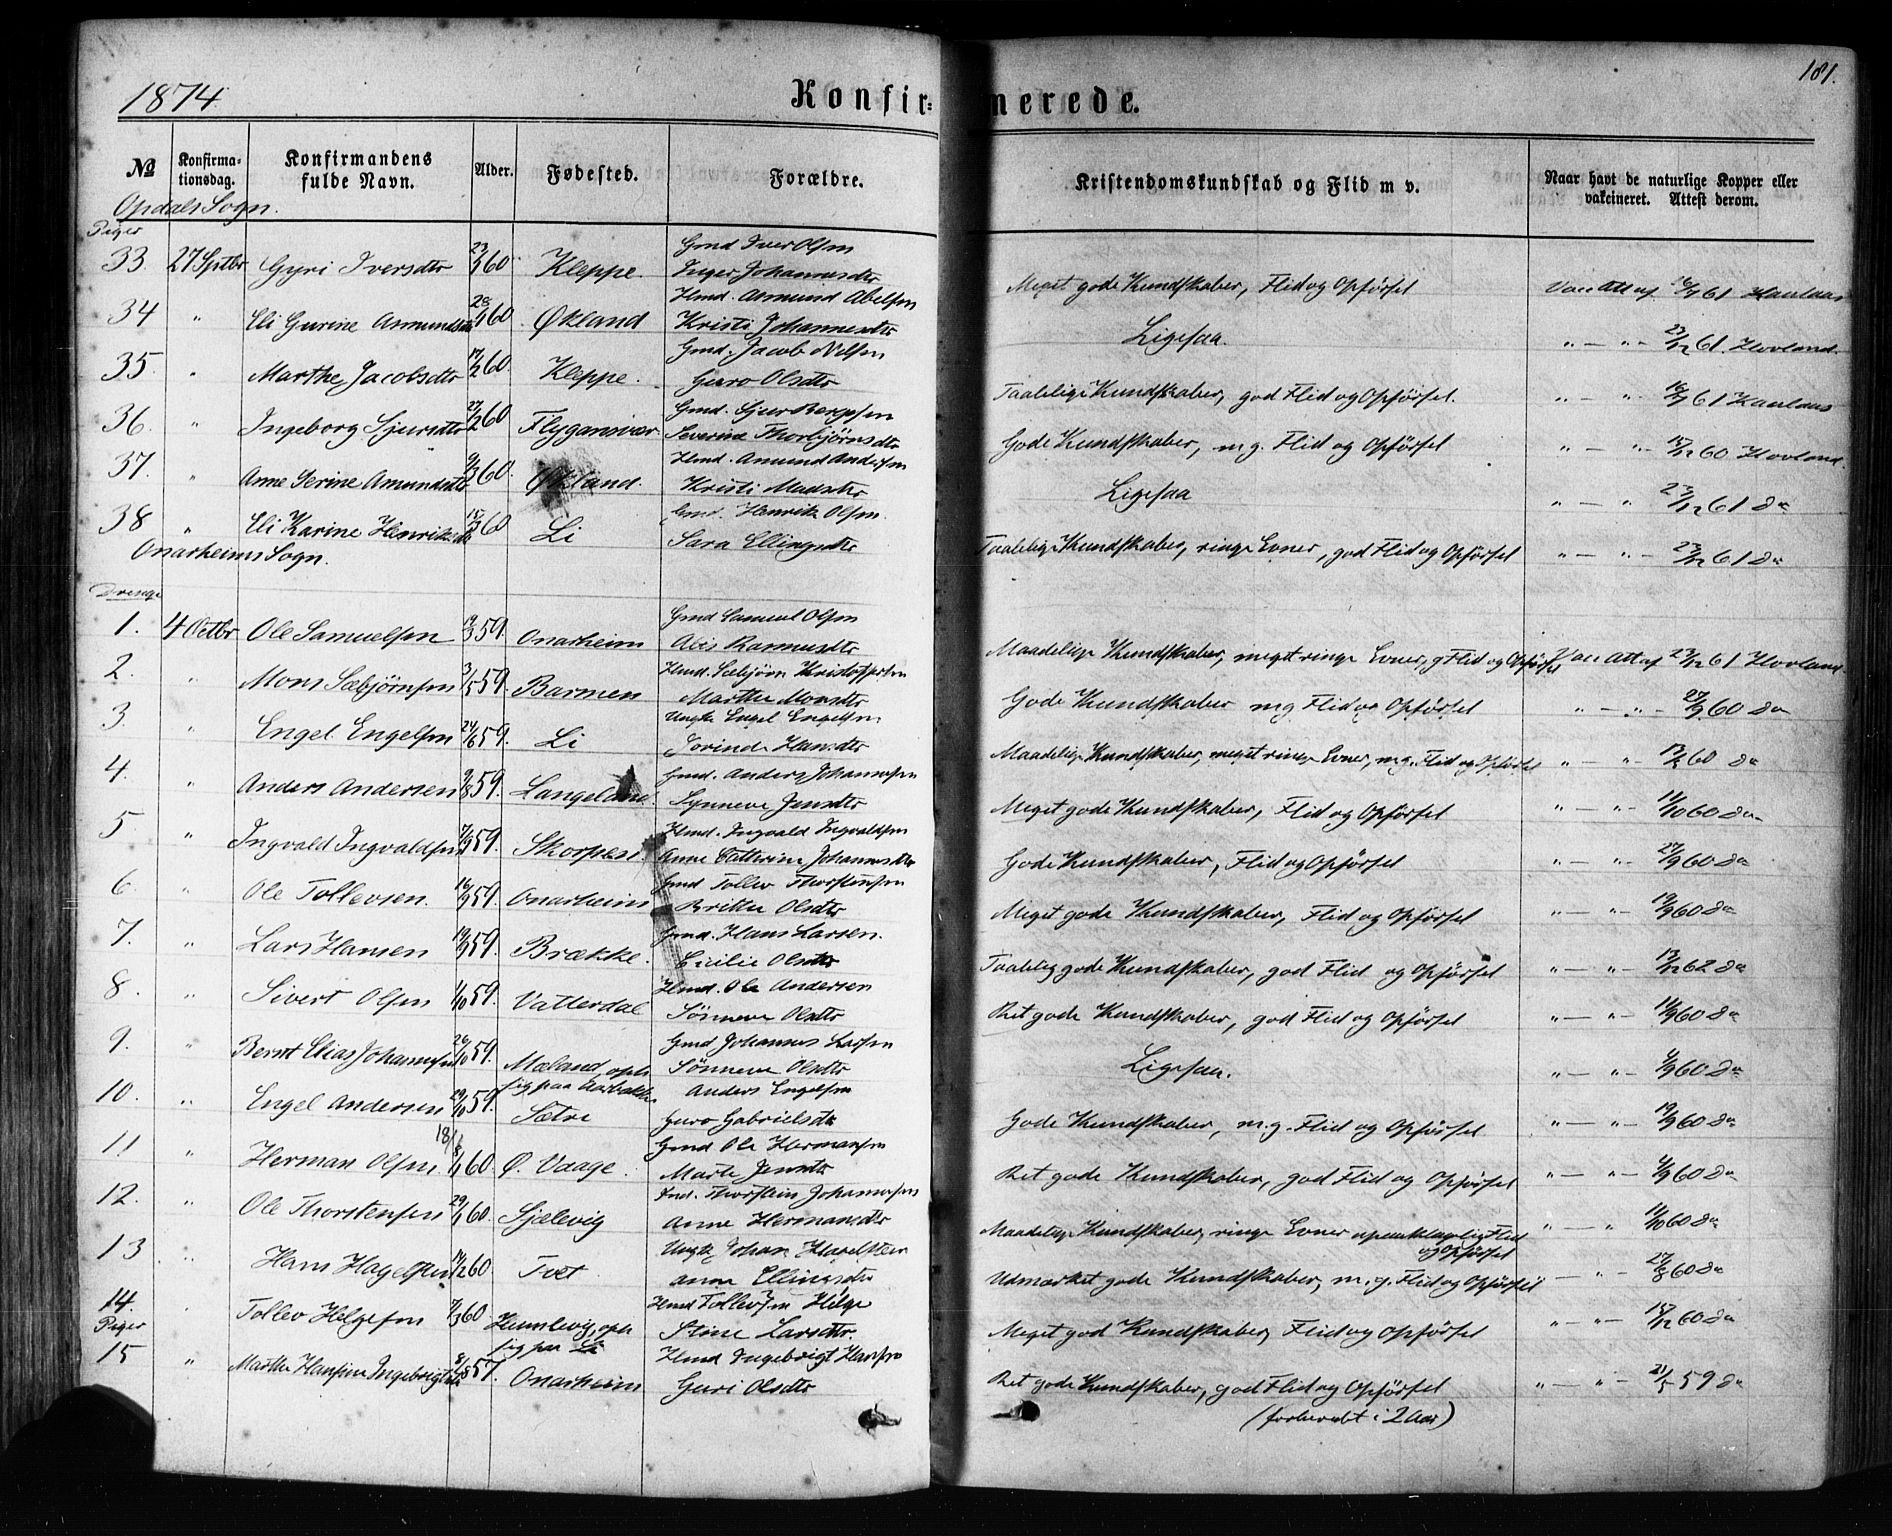 1874
Konfirmerede.
181.
No
Konfirmationsdag.
Konfirmandens fulde Navn.
Alder.
Fødested.
Forældre.
Kristendomskundskab og Flid m v.
Naar havt de naturlige Kopper eller vakcineret. Attest derom.
Opdals Sogn.
Piger
33. 27 Sptbr Gyri Iversdtr 60 Kleppe. Gmd Iver Olsen
Inger Johannesdtr Meget gode Kundskaber, Flid og Opførsel
34 " Eli Gurine Amundsdtr 60 Økland Hmd. Amund Abelsen
Kristi Johannesdtr Ligesaa. " — " - 23/12 61. Hovland.
35. " Marthe Jacobsdtr 60 Kleppe. Gmd. Jacob Nilsen
Guro Olsdtr Taalelige Kundskaber, god Flid og Opførsel.
36. " Ingeborg Sjursdtr 27/2 60 Flygansvær Gmd. Sjur
Severine Thorbjørnsdtr Gode Kundskaber, m.g. Flid og Opførsel 60 Hovland.
37. " Anne Serine Amundsdtr 60. Økland. Hmd. Amund Andersen
Kristi Madsdtr Ligesaa " — " 23/12 61 do
38 " Eli Karine Henriksdtr 60 Li Gmd. Henrik Olsen.
Sara Ellingsdtr Taalelige Kundskaber, ringe Evner, god Flid og Opførsel " — " - 23/12 61 do
Onarheims Sogn.
Drenge
1. 4 Octbr Ole Samuelsen 59. Onarheim Gmd Samuel Olsen
Rasmusdtr Maadelige Kundskaber, meget ringe Evner, g Flid og Opførsel Vac Att af 23/12 61 Hovland
2. " Mons Sæbjørnsen 3/5 59. Barmen Hmd. Sæbjørn Kristoffersen
Marthe Monsdtr Gode Kundskaber m g Flid og Opførsel " — " - 27/9 60 do
3. " Engel Engelsen 24/6 59. Li Ungk Engel Engelsen
Hansdtr Maadelige Kundskaber, meget ringe Evner, m.g. Flid og Opførsel 60 do
4. " Anders Andersen 9/8 59. Langeland. Gmd. Anders Johannesen
Synneve Jensdtr Meget gode Kundskaber, Flid og Opførsel " — " - 11/10 60 do
5. " Ingvald Ingvaldsen 7/9 59. Skorpen Hmd. Ingvald Ingvaldsen
Anne Cathrine Johannesdtr Gode Kundskaber, Flid og Opførsel " — " - 27/9 60 do
6. " Ole Tollevsen. 16/9 59. Onarheim Gmd Tollev Thorstensen
Britha Olsdtr Meget gode Kundskaber, Flid og Opførsel " — " - 19/9 60 do
7. " Lars Hansen 19/9 59. Brække. Gmd. Hans Larsen.
Cicilie Olsdtr Taalelig gode Kundskaber, god Flid og Opførsel " — " - 62 do
8. " Sivert Olsen 1/10 59. Vatterdal Hmd. Ole Andersen
Sønneva Olsdtr Ret gode Kundskaber, god Flid og Opførsel " — " 60 do
9. " Bernt Elias Johannesen 26/10 59. Mæland, oph Gmd Johannes Larsen
sig paa Aarbakka Sønneva Olsdtr Ligesaa. " — " 60 do
10. " Engel Andersen 29/10 59. Sætre Anders Engelsen
Guro Gabrielsdtr Gode Kundskaber, m.g. Flid og Opførsel " — " - 19/9 60 do
11 " Herman Olsen 18/ 60. Ø. Vaage. Gmd Ole Hermansen
Marte Jensdtr Ret gode Kundskaber, god Flid og Opførsel " — " - 4/9 60 do
12. " Ole Thorstensen 29/1 60. Sjælevig Thorstein Johannesen
Anne Hermansdtr Maadelige Kundskaber, ringe Evner upaaklagelig Flid
og Opførsel " — " 60 do
13 " Hans 60. Tvet Ungk Johan
Anna Ellingsdtr Udmærket gode Kundskaber, m.g. Flid og Opførsel — " - 60 do
14. Tollev Helgesen 60 Hemlevig, oph Hmd Tollevsen Helge
sig paa Li Stine Larsdtr. Meget god Kundskaber, Flid og Opførsel " — " - 60 do
Piger
15 " Marthe Hansine Ingebrigtsdtr 57. Onarheim Hmd Ingebrigt Hansen
Guri Olsdtr Ret gode Kundskaber, god Flid og Opførsel " — " - 21/5 59 do
(forberedt i 2 Aar)